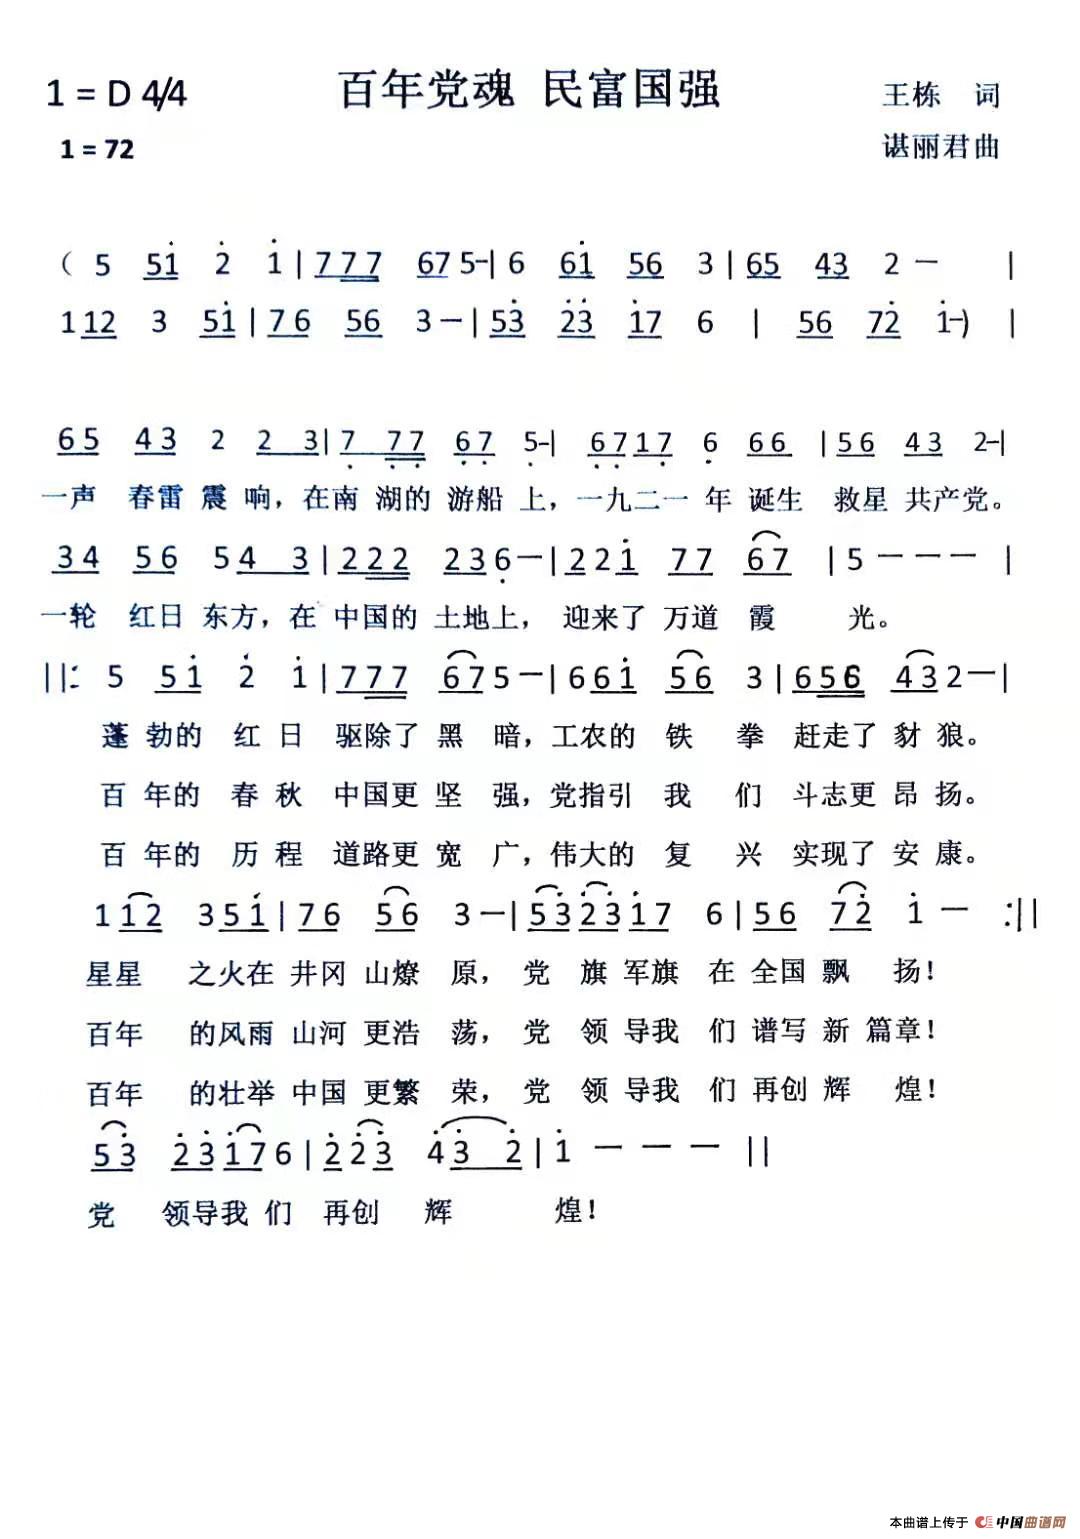 1 = D 4/4 百年党魂 民富国强 王栋 词
1 = 72 谌丽君曲
( 5 51̇ 2̇ 1̇ | 777 67 5- | 6 61̇ 56 3 | 65 43 2 - |
1 12 3 51̇ | 76 56 3 - | 53̇ 2̇3̇ 1̇7 6 | 56 72̇ 1̇- ) |
65 43 2 2 3 | 7̣ 7̣7̣ 6̣7̣ 5̣- | 6̣7̣17̣ 6̣ 66 | 56 43 2- |
一声 春雷 震 响，在南 湖的 游船 上，一九二一 年 诞生 救星 共产党。
34 56 5 4 3 | 222 236̣ - | 221̇ 77 67 | 5 - - - |
一轮 红日 东方，在 中国的 土地上，迎来了 万道 霞 光。
||: 5 51̇ 2̇ 1̇ | 777 675 - | 661̇ 56 3 | 656 432 - |
蓬 勃的 红 日 驱除了 黑 暗，工农的 铁 拳 赶走了 豺 狼。
百 年的 春 秋 中国更 坚 强，党指引 我 们 斗志更 昂 扬。
百 年的 历 程 道路更 宽 广，伟大的 复 兴 实现了 安 康。
1 12 3 51̇ | 76 56 3 - | 53̇2̇3̇1̇7 6 | 56 72̇ 1̇ - :||
星星 之火在 井冈 山燎 原， 党 旗 军旗 在 全国 飘 扬！
百年 的风雨 山河 更浩 荡， 党 领 导我 们 谱写 新 篇章！
百年 的壮举 中国 更繁 荣， 党 领 导我 们 再创 辉 煌！
53̇ 2̇3̇1̇76 | 2̇2̇3̇ 4̇3̇ 2̇ | 1̇ - - - ||
党 领导我 们 再创 辉 煌！
本曲谱上传于 中国曲谱网